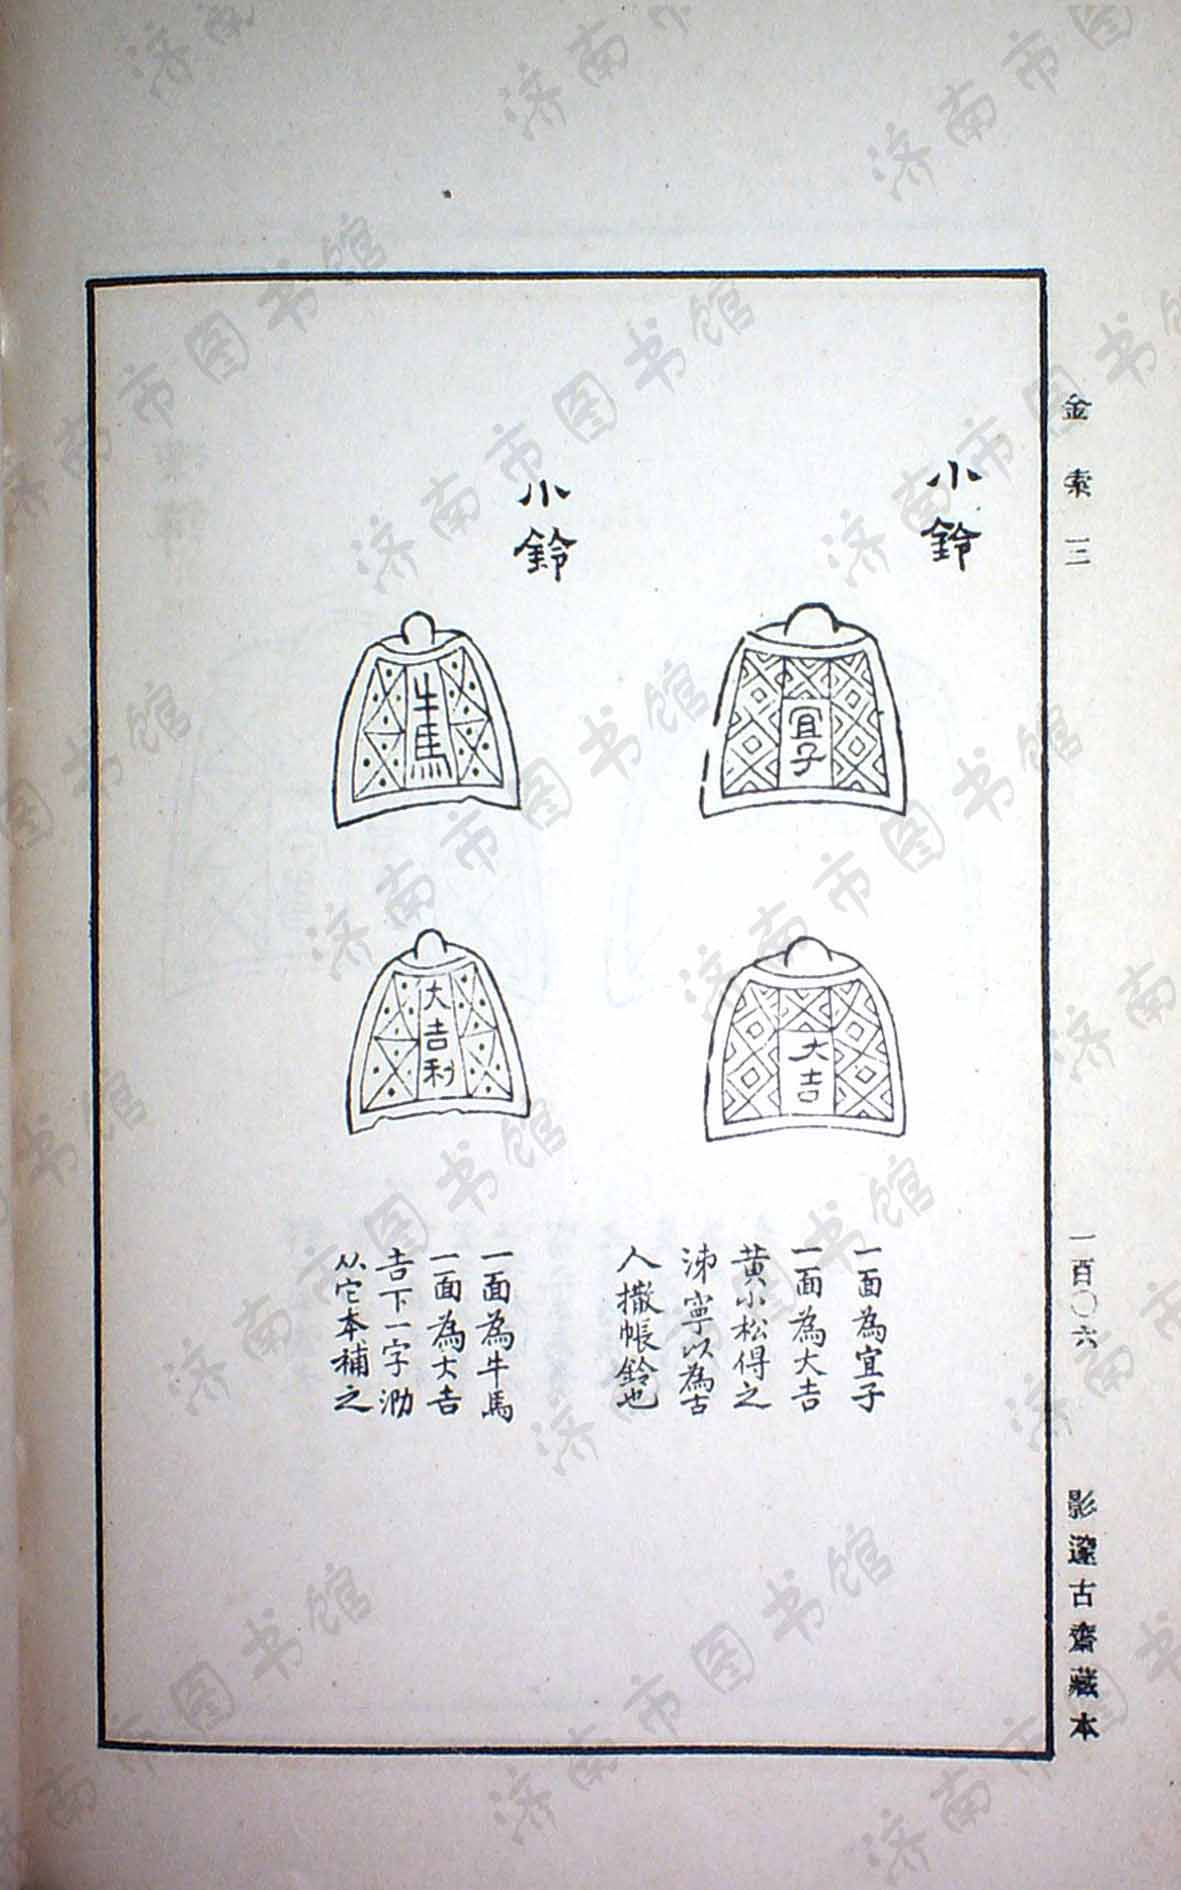 金索三
一百〇六
影邃古齋藏本
小鈴
宜子
大吉
一面為宜子
一面為大吉
黃小松得之
沛寧以為古
人撒帳鈴也
小鈴
牛馬
大吉利
一面為牛馬
一面為大吉
吉下一字泐
从它本補之
济南市图书馆